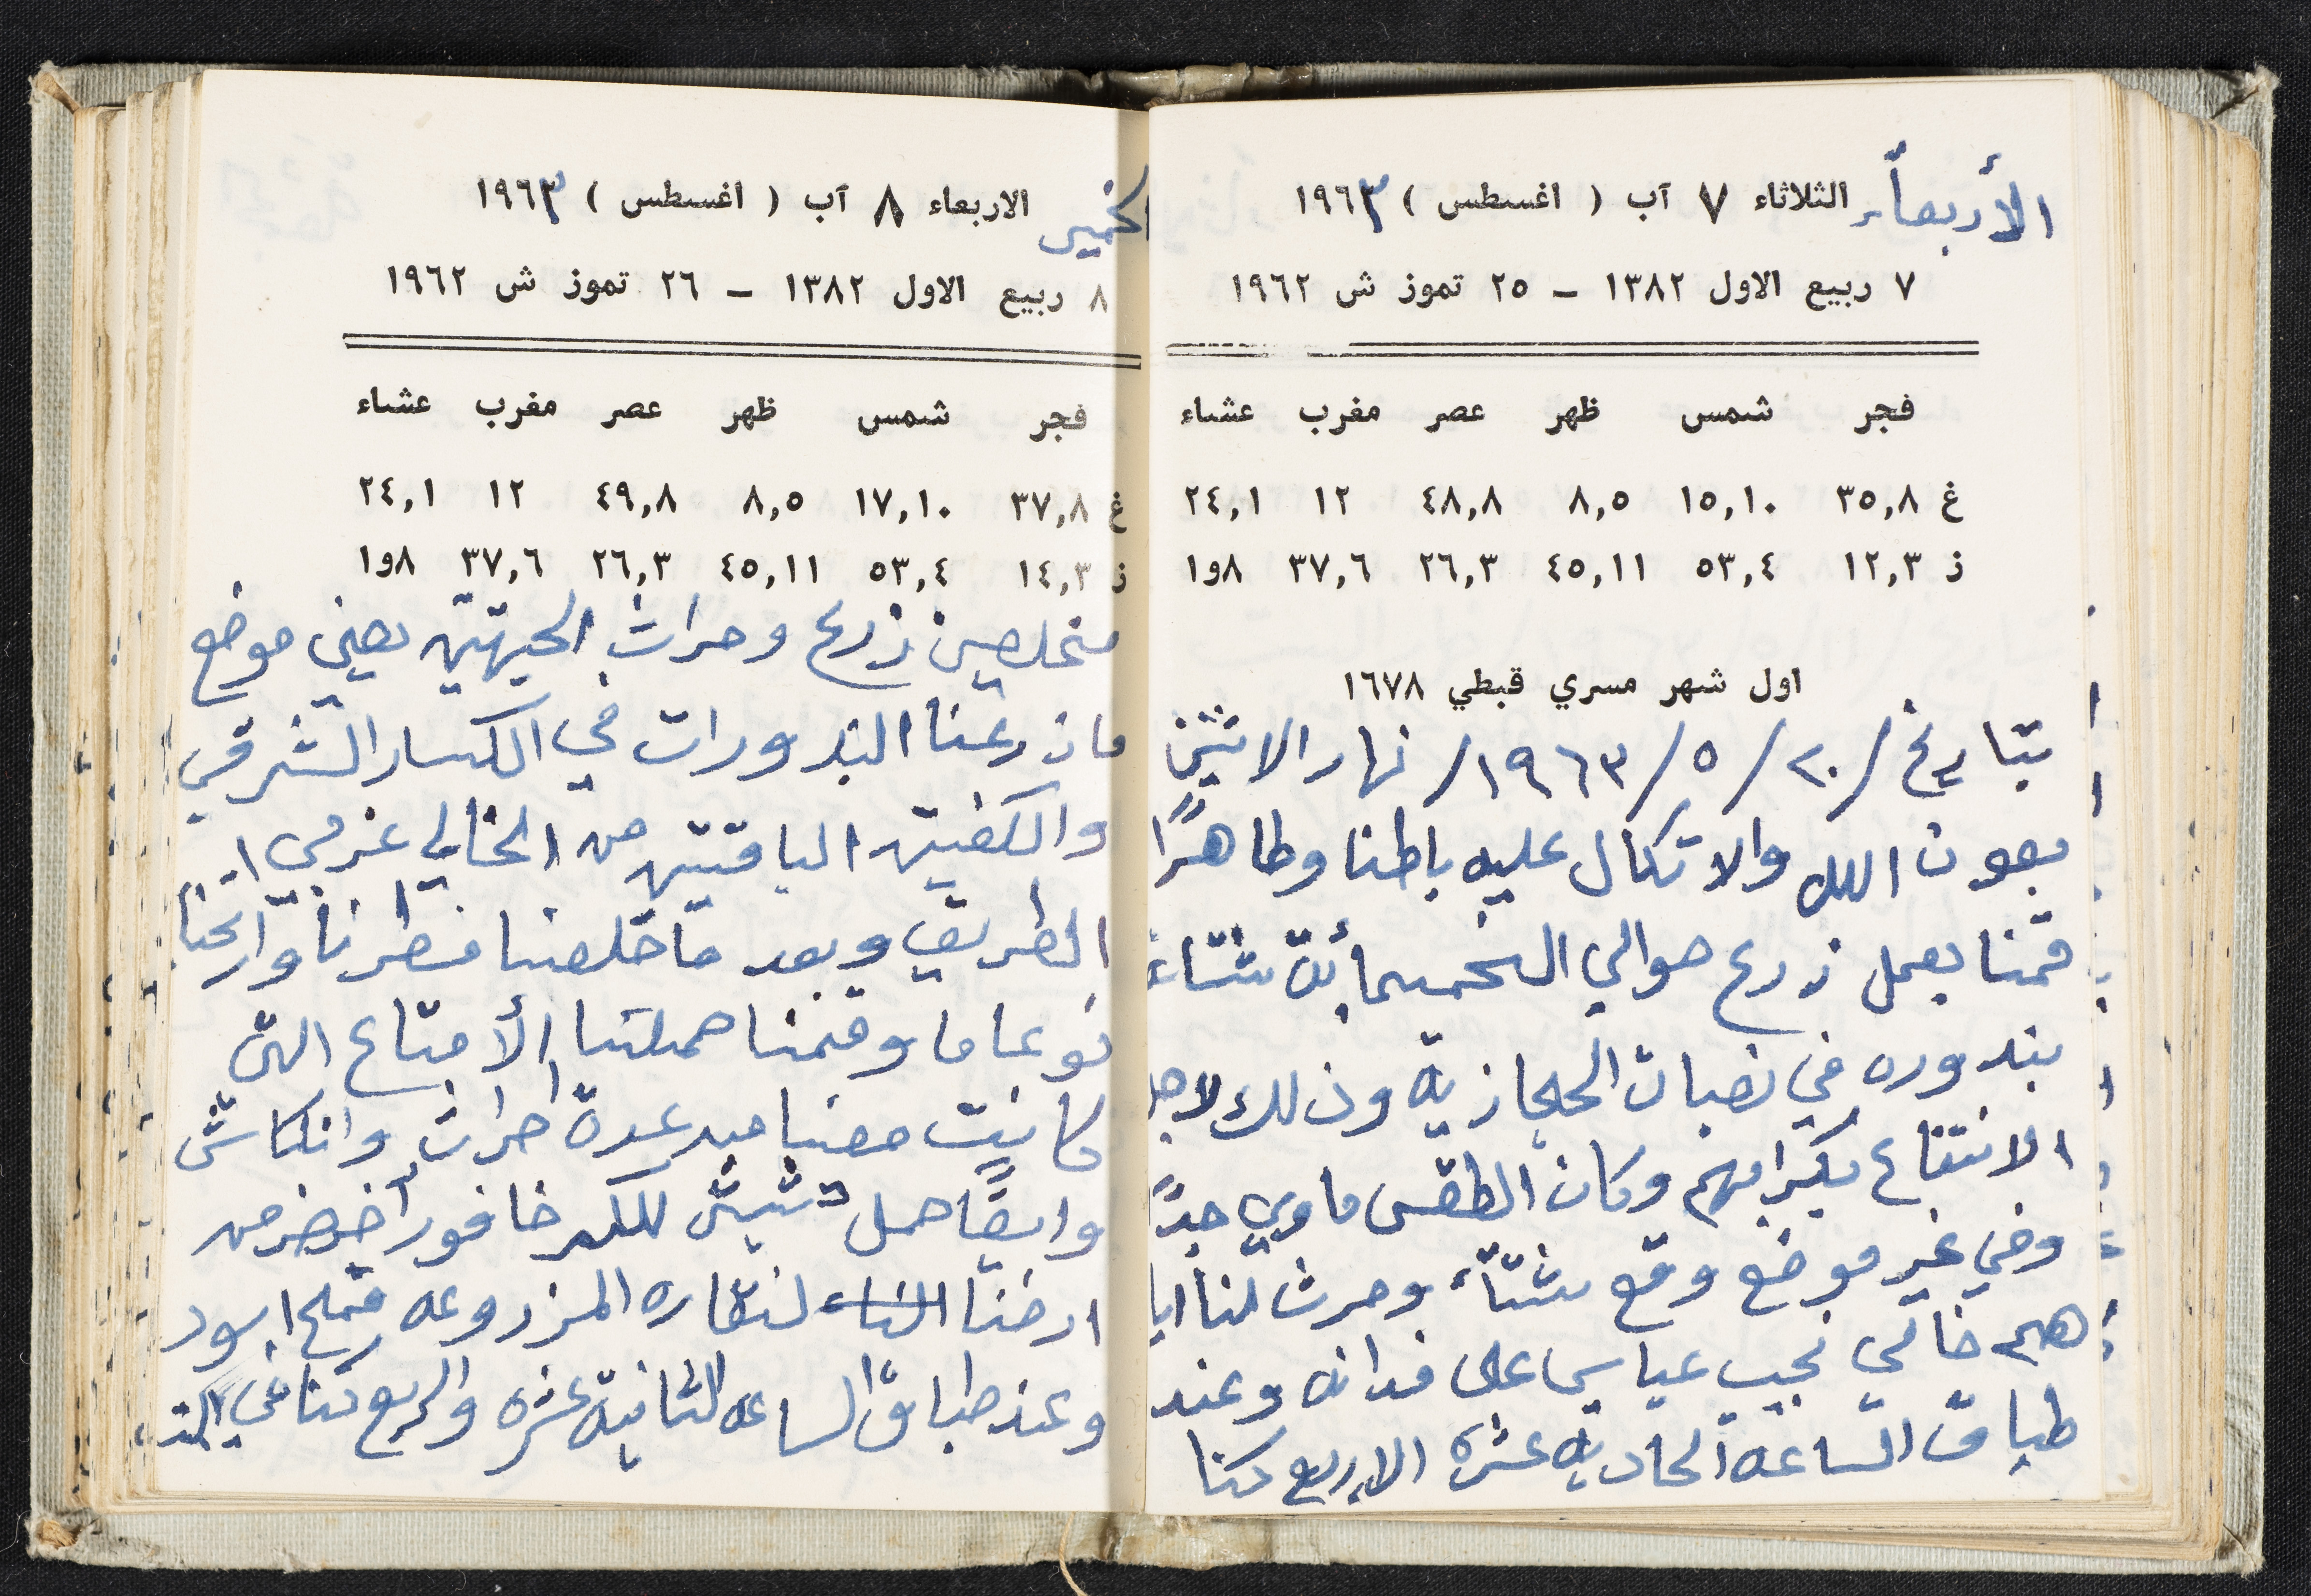 الأربعاء الثلاثاء ٧ آب ( اغسطس ) ١٩٦٣
٧ ربيع الاول ١٣٨٢ – ٢٥ تموز ش ١٩٦٢
فجر شمس ظهر عصر مغرب عشاء
غ ٣٥,٨ ١٥,١٠ ٨,٥ ٤٨,٨ ١٢ ٢٤,١
ز ١٢,٣ ٥٣,٤ ٤٥,١١ ٢٦,٣ ٣٧,٦ ٨و١
اول شهر مسري قبطي ١٦٧٨
بتاريخ /٢٠/٥/١٩٦٣/ نهار الاثنين
بعون الله والاتكال عليه باطنا وظاهرًا
قمنا بعمل زرع حوالي الخمسمائة شتاء
بندوره في نصبات الحجازية وذلك لاجل
الانتفاع بكرابهم وكان الطقس ماوي جدًا
وفي غير موضع وقع شتاء وحرث لنا ايا
هم خالي نجيب عباسي على فدانه وعند
طباق الساعه الحادية عشره الا ربع كنا
الخميس الاربعاء ٨ آب ( اغسطس ) ١٩٦٣
٨ ربيع الاول ١٣٨٢ – ٢٦ تموز ش ١٩٦٢
فجر شمس ظهر عصر مغرب عشاء
غ ٣٧,٨ ١٧,١٠ ٨,٥ ٤٩,٨ ١٢ ٢٤,١
ز ١٤,٣ ٥٣,٤ ٤٥,١١ ٢٦,٣ ٣٧,٦ ٨و١
مخلصين زرع وحراث الجهتين يعني موضع
ما زرعنا البندورات في الكسار الشرقي
والكفيتين الباقتين من الخالي غربي
الطريق وبعد ما خلصنا فطرنا وارتحنا
نوعا ما وقمنا حملنا الأمتاع التي
كانت معنا مبد عدة احراث وانكاش
وايضًا حمل حشيش للكر خافور أخضر من
ارضنا النقاره المزروعه قمح اسود
وعند طباق الساعه الثانية عشره والربع كنا في